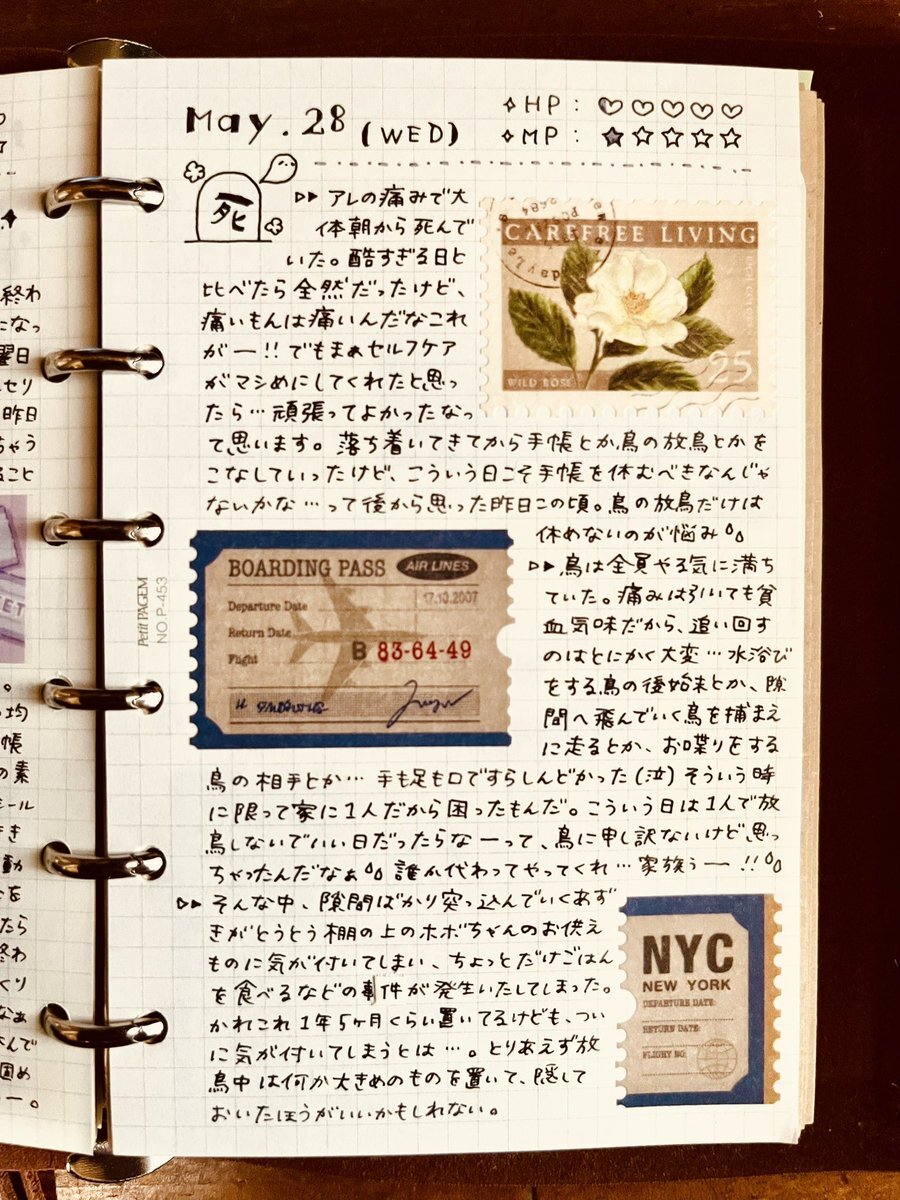 May. 28 (WED)
✧HP : ♥♡♡♡♡
✧MP : ★☆☆☆☆
死
▷▷ アレの痛みで大
体朝から死んで
いた。酷すぎる日と
比べたら全然だったけど、
痛いもんは痛いんだなこれ
がー!! でもまぁセルフケア
がマシめにしてくれたと思っ
たら… 頑張ってよかったなっ
て思います。落ち着いてきてから手帳とか鳥の放鳥とかを
こなしていったけど、こういう日こそ手帳を休むべきなんじゃ
ないかな…って後から思った昨日この頃。鳥の放鳥だけは
休めないのが悩み
▷▷ 鳥は全員やる気に満ち
ていた。痛みは引いても貧
血気味だから、追い回す
のはとにかく大変… 水浴び
をする鳥の後始末とか、隙
間へ飛んでいく鳥を捕まえ
に走るとか、お喋りをする
鳥の相手とか… 手も足も口ですらしんどかった(泣) そういう時
に限って家に1人だから困ったもんだ。こういう日は1人で放
鳥しないでいい日だったらなーって、鳥に申し訳ないけど思っ
ちゃったんだなぁ 誰か代わってやってくれ… 家族ぅー!!
▷▷ そんな中、隙間ばかり突っ込んでいくあず
きがとうとう棚の上のホボちゃんのお供え
ものに気が付いてしまい、ちょっとだけごはん
を食べるなどの事件が発生いたしてしまった。
かれこれ1年5ヶ月くらい置いてるけども、つい
に気が付いてしまうとは…。とりあえず放
鳥中は何か大きめのものを置いて、隠して
おいたほうがいいかもしれない。
CAREFREE LIVING
WILD ROSE
25
BOARDING PASS AIR LINES
Departure Date 17.10.2007
Return Date
Flight B 83-64-49
NYC
NEW YORK
DEPARTURE DATE:
RETURN DATE:
FLIGHT NO:
Petit PAGEM
NO. P-453
終わ
になっ
曜日
セリ
昨日
ちゃう
ること
EET
均
帳
の素
シール
き
動
を
たら
終わ
くり
なぁ
んで
固め
ー。